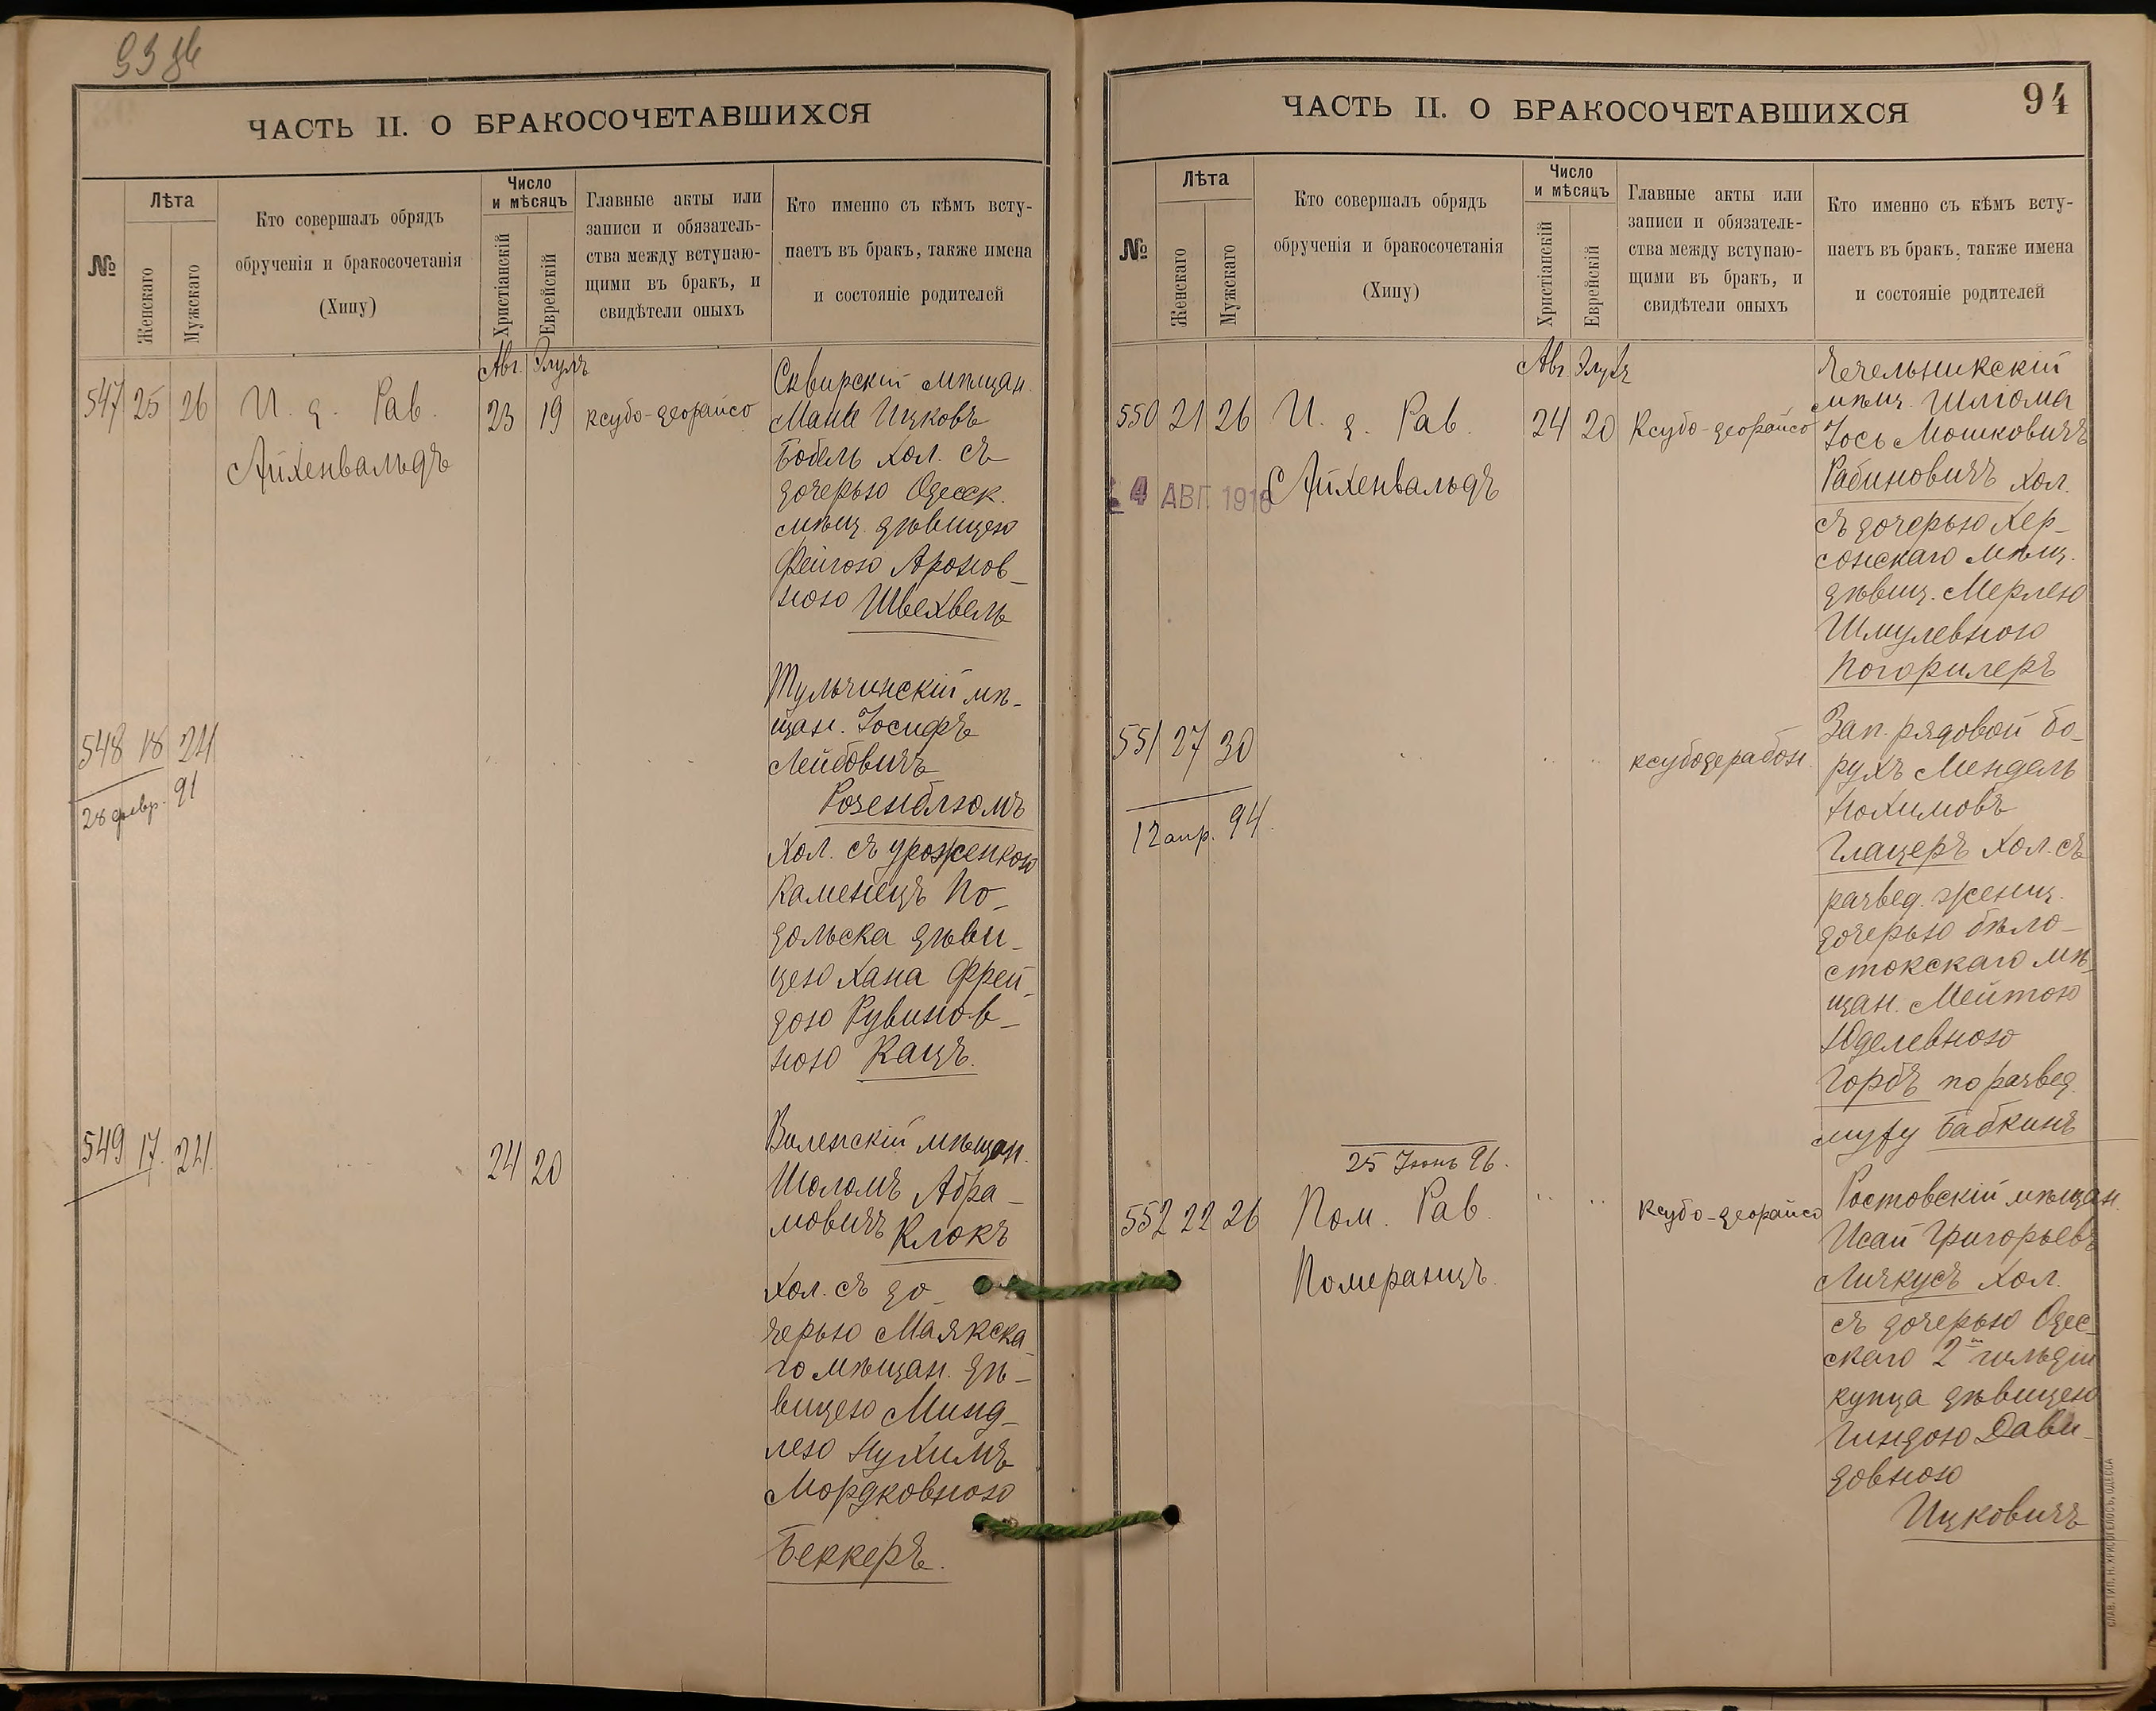 ЧАСТЬ II. О БРАКОСОЧЕТАВШИХСЯ
№
Лѣта
Женскаго
Мужскаго
Кто совершалъ обрядъ
обрученія и бракосочетанія
(Хипу)
Число
и мѣсяцъ
Христіанскій
Еврейскій
Главные акты или
записи и обязатель-
ства между вступаю-
щими въ бракъ, и
свидѣтели оныхъ
Кто именно съ кѣмъ всту-
паетъ въ бракъ, также имена
и состояніе родителей
Авг. Элулъ
547 25 26 И. д. Рав. 23 19 ксубо-деорайсо
Айхенвальдъ
Сквирскій мѣщан.
Мане Ицковъ
Бобель хол. съ
дочерью Одесск.
мѣщ. дѣвицею
Фейгою Аронов-
ною Швехвель
548 18 24
28 февр. 91
Тульчинскій мѣ-
щан. Іосифъ
Лейбовичъ
Розенблюмъ
хол. съ уроженкою
Каменецъ По-
дольска дѣви-
цею Хана Фрей-
дою Рувинов-
ною Кацъ.
549 17. 24. 24 20
Виленскій мѣщан.
Шоломъ Абра-
мовичъ Клокъ
хол. съ до-
черью Маякска-
го мѣщан. дѣ-
вицею Минд-
лею Нухимъ
Мордковною
Беккеръ.
ЧАСТЬ II. О БРАКОСОЧЕТАВШИХСЯ
94
№
Лѣта
Женскаго
Мужскаго
Кто совершалъ обрядъ
обрученія и бракосочетанія
(Хипу)
Число
и мѣсяцъ
Христіанскій
Еврейскій
Главные акты или
записи и обязатель-
ства между вступаю-
щими въ бракъ, и
свидѣтели оныхъ
Кто именно съ кѣмъ всту-
паетъ въ бракъ, также имена
и состояніе родителей
Авг. Элулъ
550 21 26 И. д. Рав. 24 20 Ксубо-деорайсо
Айхенвальдъ
4 АВГ. 1916
Чечельникскій
мѣщ. Шліома
Іось Мошковичъ
Рабиновичъ хол.
съ дочерью Хер-
сонскаго мѣщ.
дѣвиц. Мерлею
Шмулевною
Погорилеръ
551 27 30 ксубодерабон.
12 апр. 94.
Зап. рядовой Бо-
рухъ Мендель
Нохимовъ
Глацеръ хол. съ
развед. женщ.
дочерью бѣло-
стокскаго мѣ-
щан. Мейтою
Юделевною
Горбъ по развед.
мужу Бабкинъ
25 Іюнь 96.
552 22 26 Пом. Рав. Ксубо-деорайсо
Померанцъ.
Ростовскій мѣщан.
Исай Григорьевъ
Личкусъ хол.
съ дочерью Одес-
скаго 2й гильдіи
купца дѣвицею
Гиндою Дави-
довною
Ицковичъ
СЛАВ. ТИП. Н. ХРИСОГЕЛОСЪ, ОДЕССА